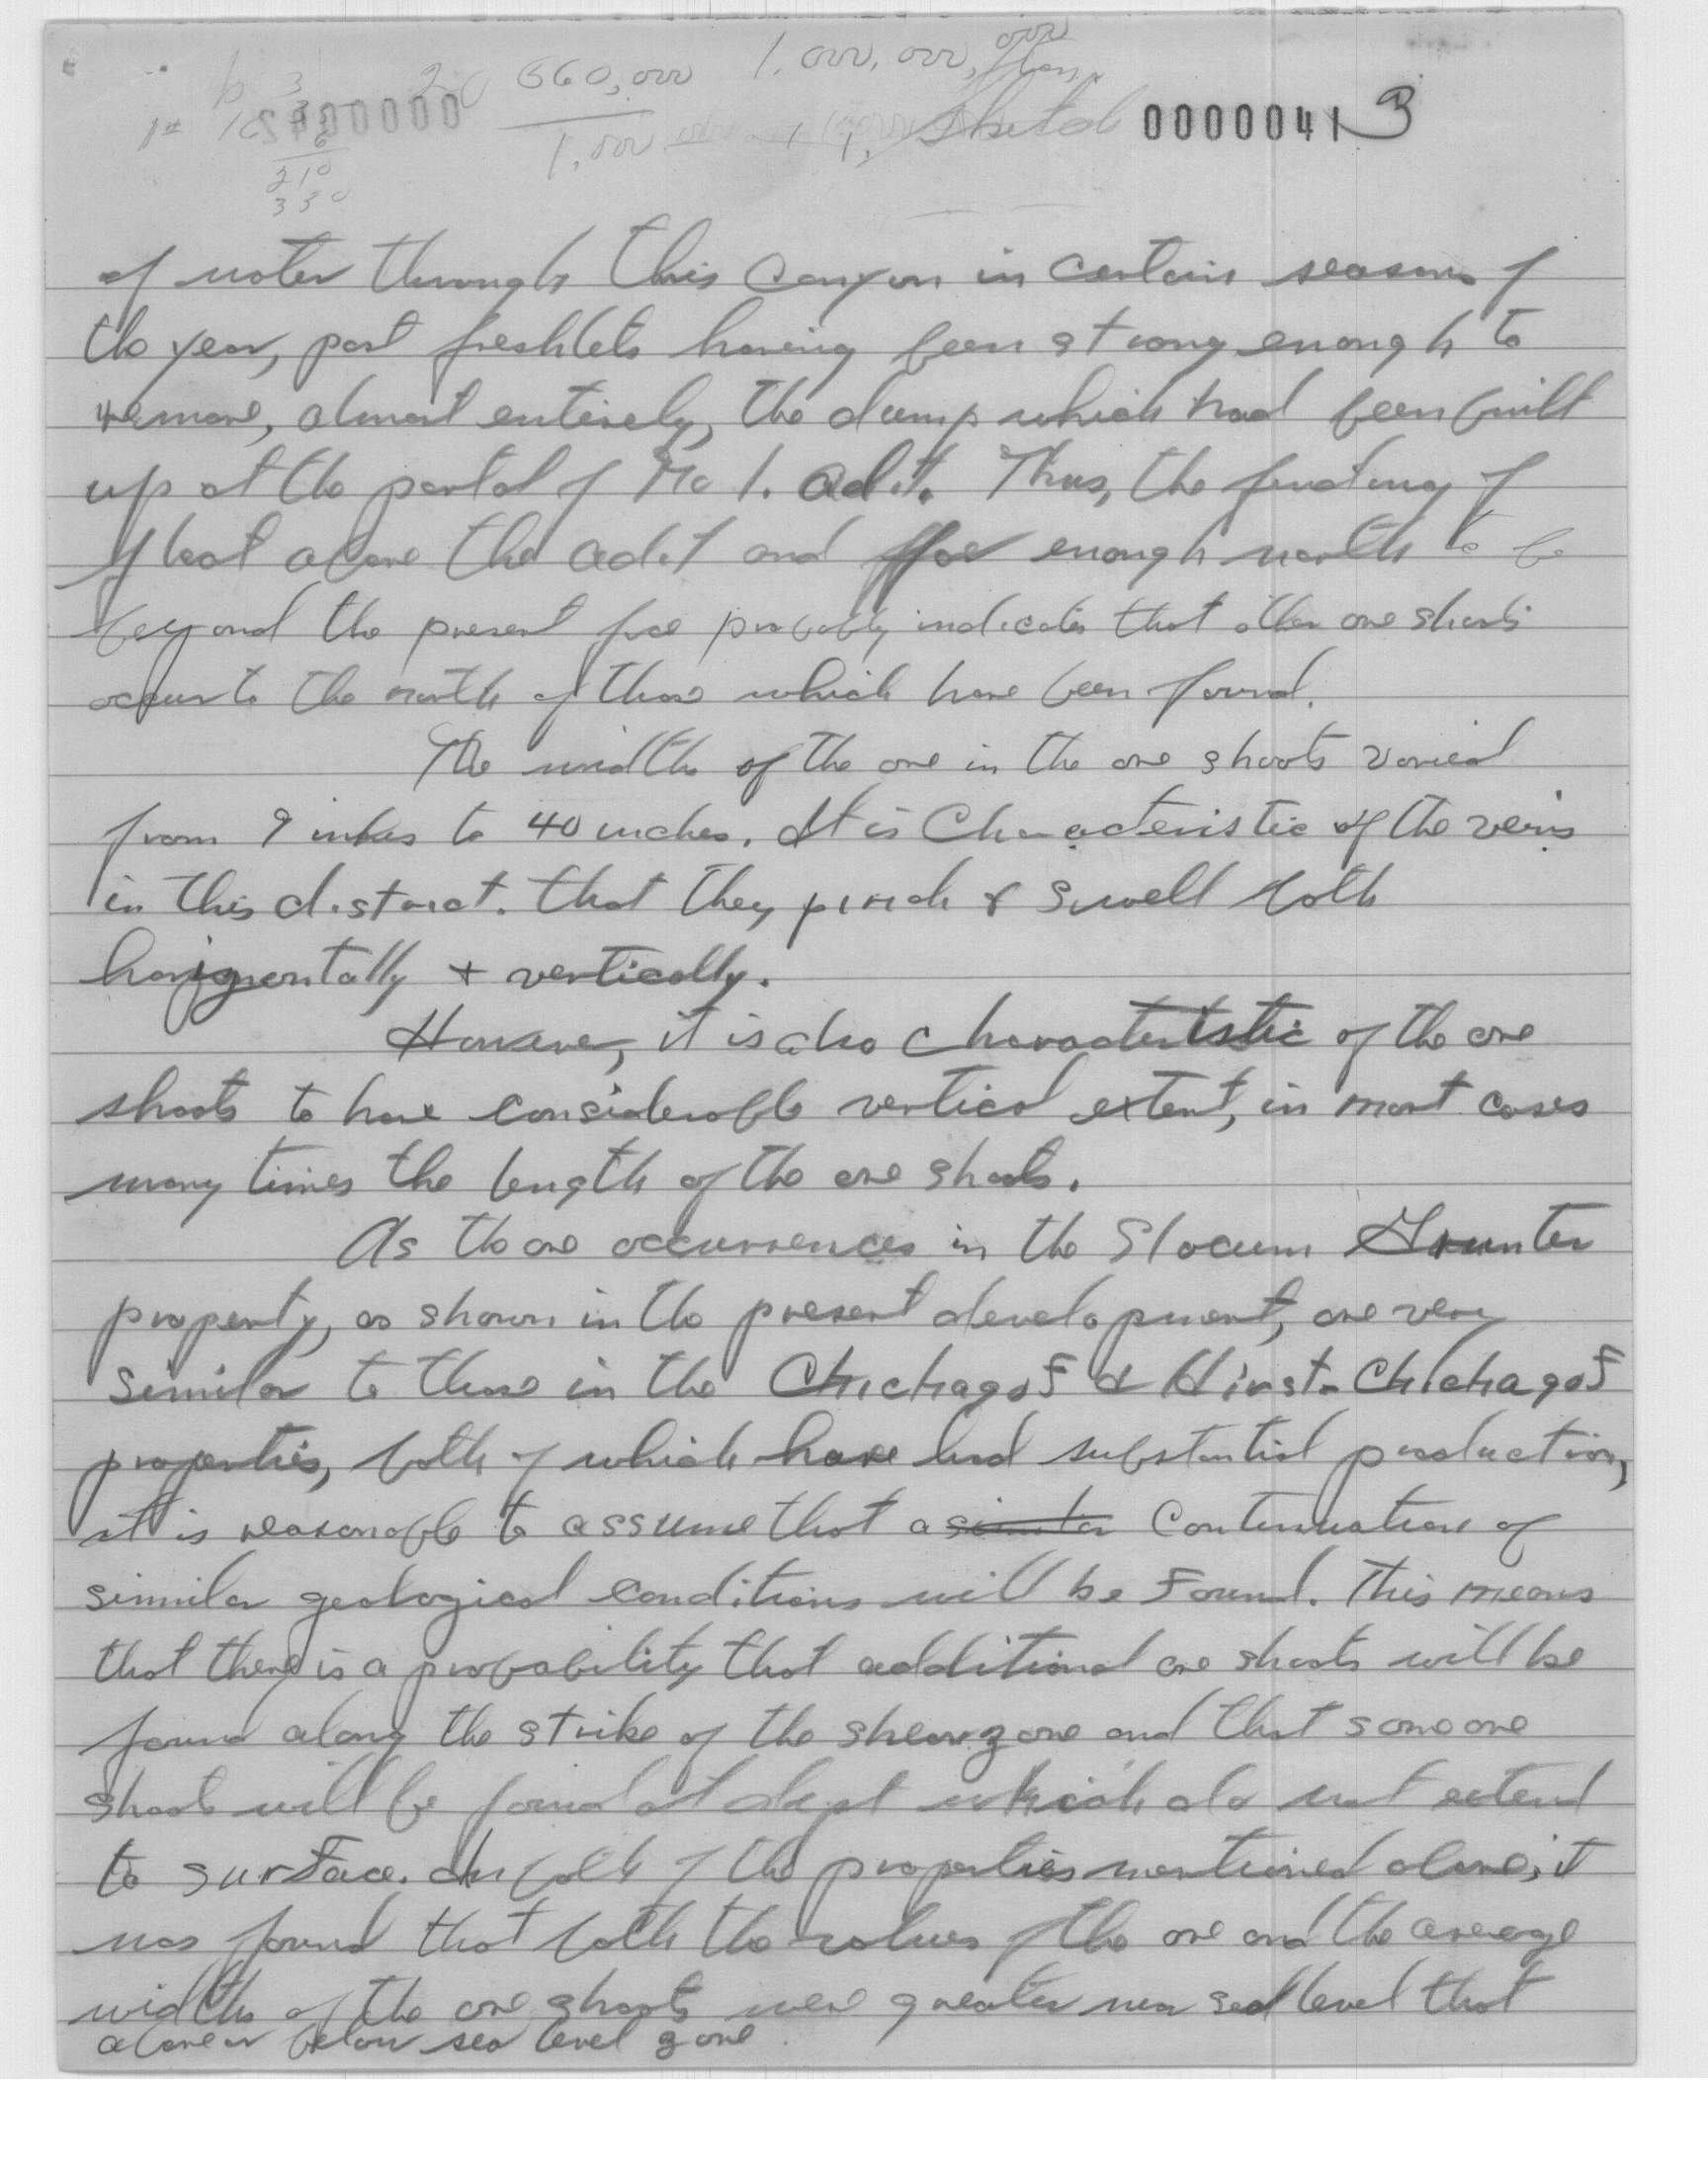 660,000 1,000,000,000
1,000
0000041 3
210
330
of water through this canyon in certain seasons of
the year, past freshlets having been strong enough to
remove, almost entirely, the dump which had been built
up at the portal of No 1. adit. Thus, the finding of
float above the adit and far enough north to be
beyond the present face probably indicates that other ore shoots
occur to the north of those which have been found.
The width of the ore in the ore shoots varied
from 9 inches to 40 inches. It is characteristic of the veins
in this district. that they pinch & swell both
horizontally + vertically.
However, it is also characteristic of the ore
shoots to have considerable vertical extent, in most cases
many times the length of the ore shoots.
As the ore occurrences in the Slocum
property, as shown in the present development, are very
similar to those in the Chichagof & Hirst-Chichagof
properties, both of which have had substantial production,
it is reasonable to assume that a similar continuation of
similar geological conditions will be found. This means
that there is a probability that additional ore shoots will be
found along the strike of the shear zone and that some ore
shoots will be found at dept which do not extend
to surface. In both of the properties mentioned above, it
was found that both the values of the ore and the average
widths of the ore shoots were greater near sea level that
above or below sea level zone